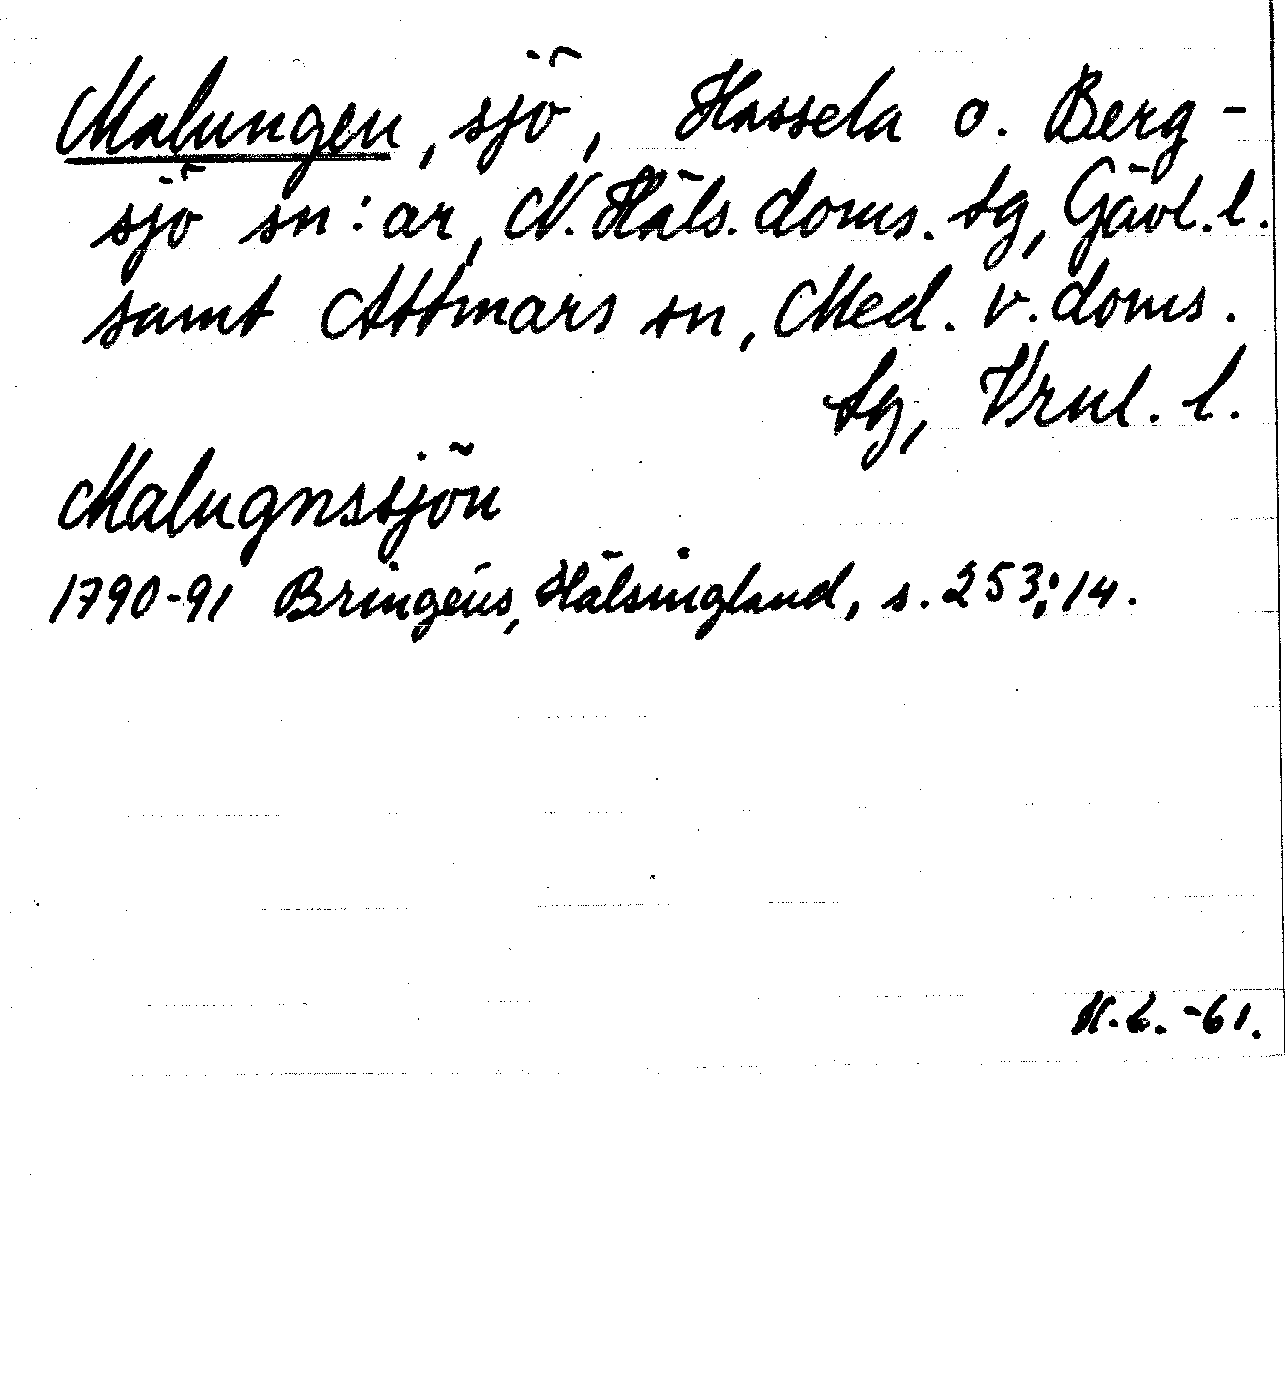 Malungen, sjö, Hassela o. Berg-
sjö sn:ar, N. Häls. doms. tg, Gävl. l.
samt Attmars sn, Med. v. doms.
tg, Vrnl. l.
Malugnssjön
1790-91 Bringéus, Hälsingland, s. 253:14.
-61.